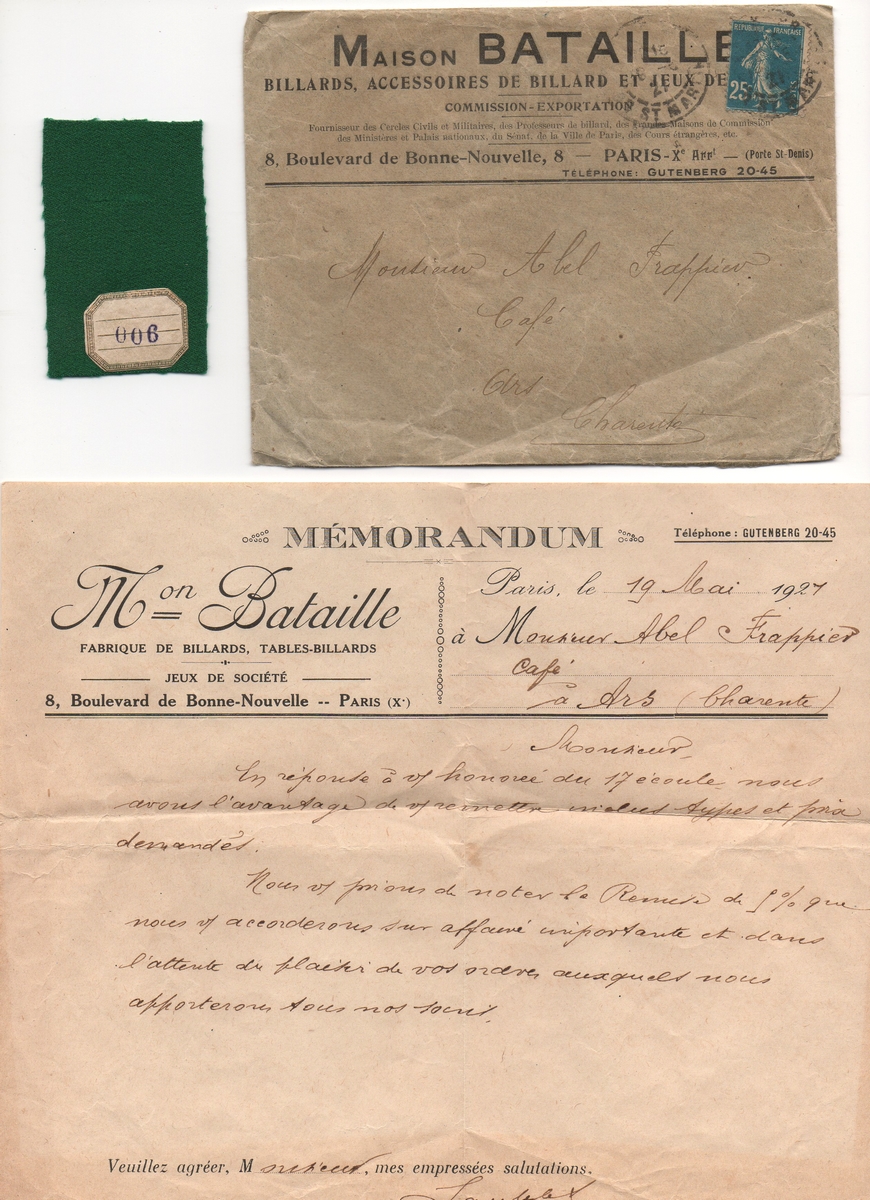 006
MAISON BATAILLE
BILLARDS, ACCESSOIRES DE BILLARD ET JEUX DE
COMMISSION-EXPORTATION
Fournisseur des Cercles Civils et Militaires, des Professeurs de billard, des Grandes Maisons de Commission
des Ministères et Palais nationaux, du Sénat, de la Ville de Paris, des Cours étrangères, etc.
8, Boulevard de Bonne-Nouvelle, 8 — PARIS-Xe Arrt — (Porte St-Denis)
TÉLÉPHONE: GUTENBERG 20-45
RÉPUBLIQUE FRANÇAISE
25
ST MAR
Monsieur Abel Frappier
Café
Ars
Charente
MÉMORANDUM
Téléphone : GUTENBERG 20-45
Mon Bataille
FABRIQUE DE BILLARDS, TABLES-BILLARDS
JEUX DE SOCIÉTÉ
8, Boulevard de Bonne-Nouvelle -- PARIS (Xe)
Paris, le 19 Mai 1921
à Monsieur Abel Frappier
Café
à Ars (Charente)
Monsieur,
En réponse à v/ honorée du 17 écoulé nous
avons l'avantage de v/ remettre inclus types et prix
demandés.
Nous v/ prions de noter la Remise de 5% que
nous v/ accorderons sur affaire importante et dans
l'attente du plaisir de vos ordres auxquels nous
apporterons tous nos soins.
Veuillez agréer, Monsieur, mes empressées salutations.